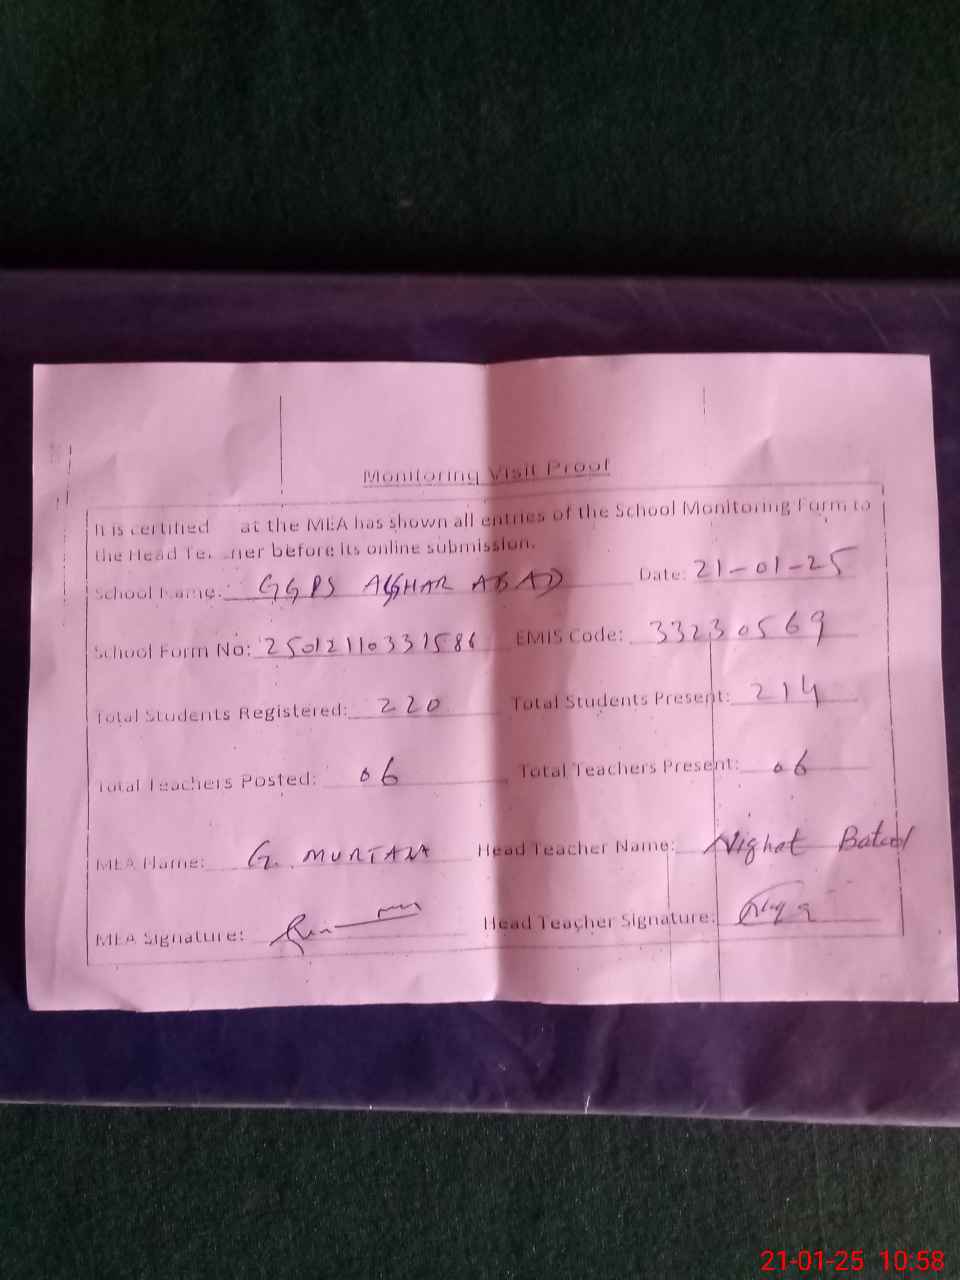 Monitoring Visit Proof
It is certified at the MEA has shown all entries of the School Monitoring Form to
the Head Te. her before its online submission.
School Name: GGPS ASGHAR ABAD Date: 21-01-25
School Form No: 25012110331586 EMIS Code: 33230569
Total Students Registered: 220 Total Students Present: 214
Total Teachers Posted: 06 Total Teachers Present: 06
MEA Name: G. MURTAZA Head Teacher Name: Nighat Batool
MEA Signature: Head Teacher Signature:
21-01-25 10:58